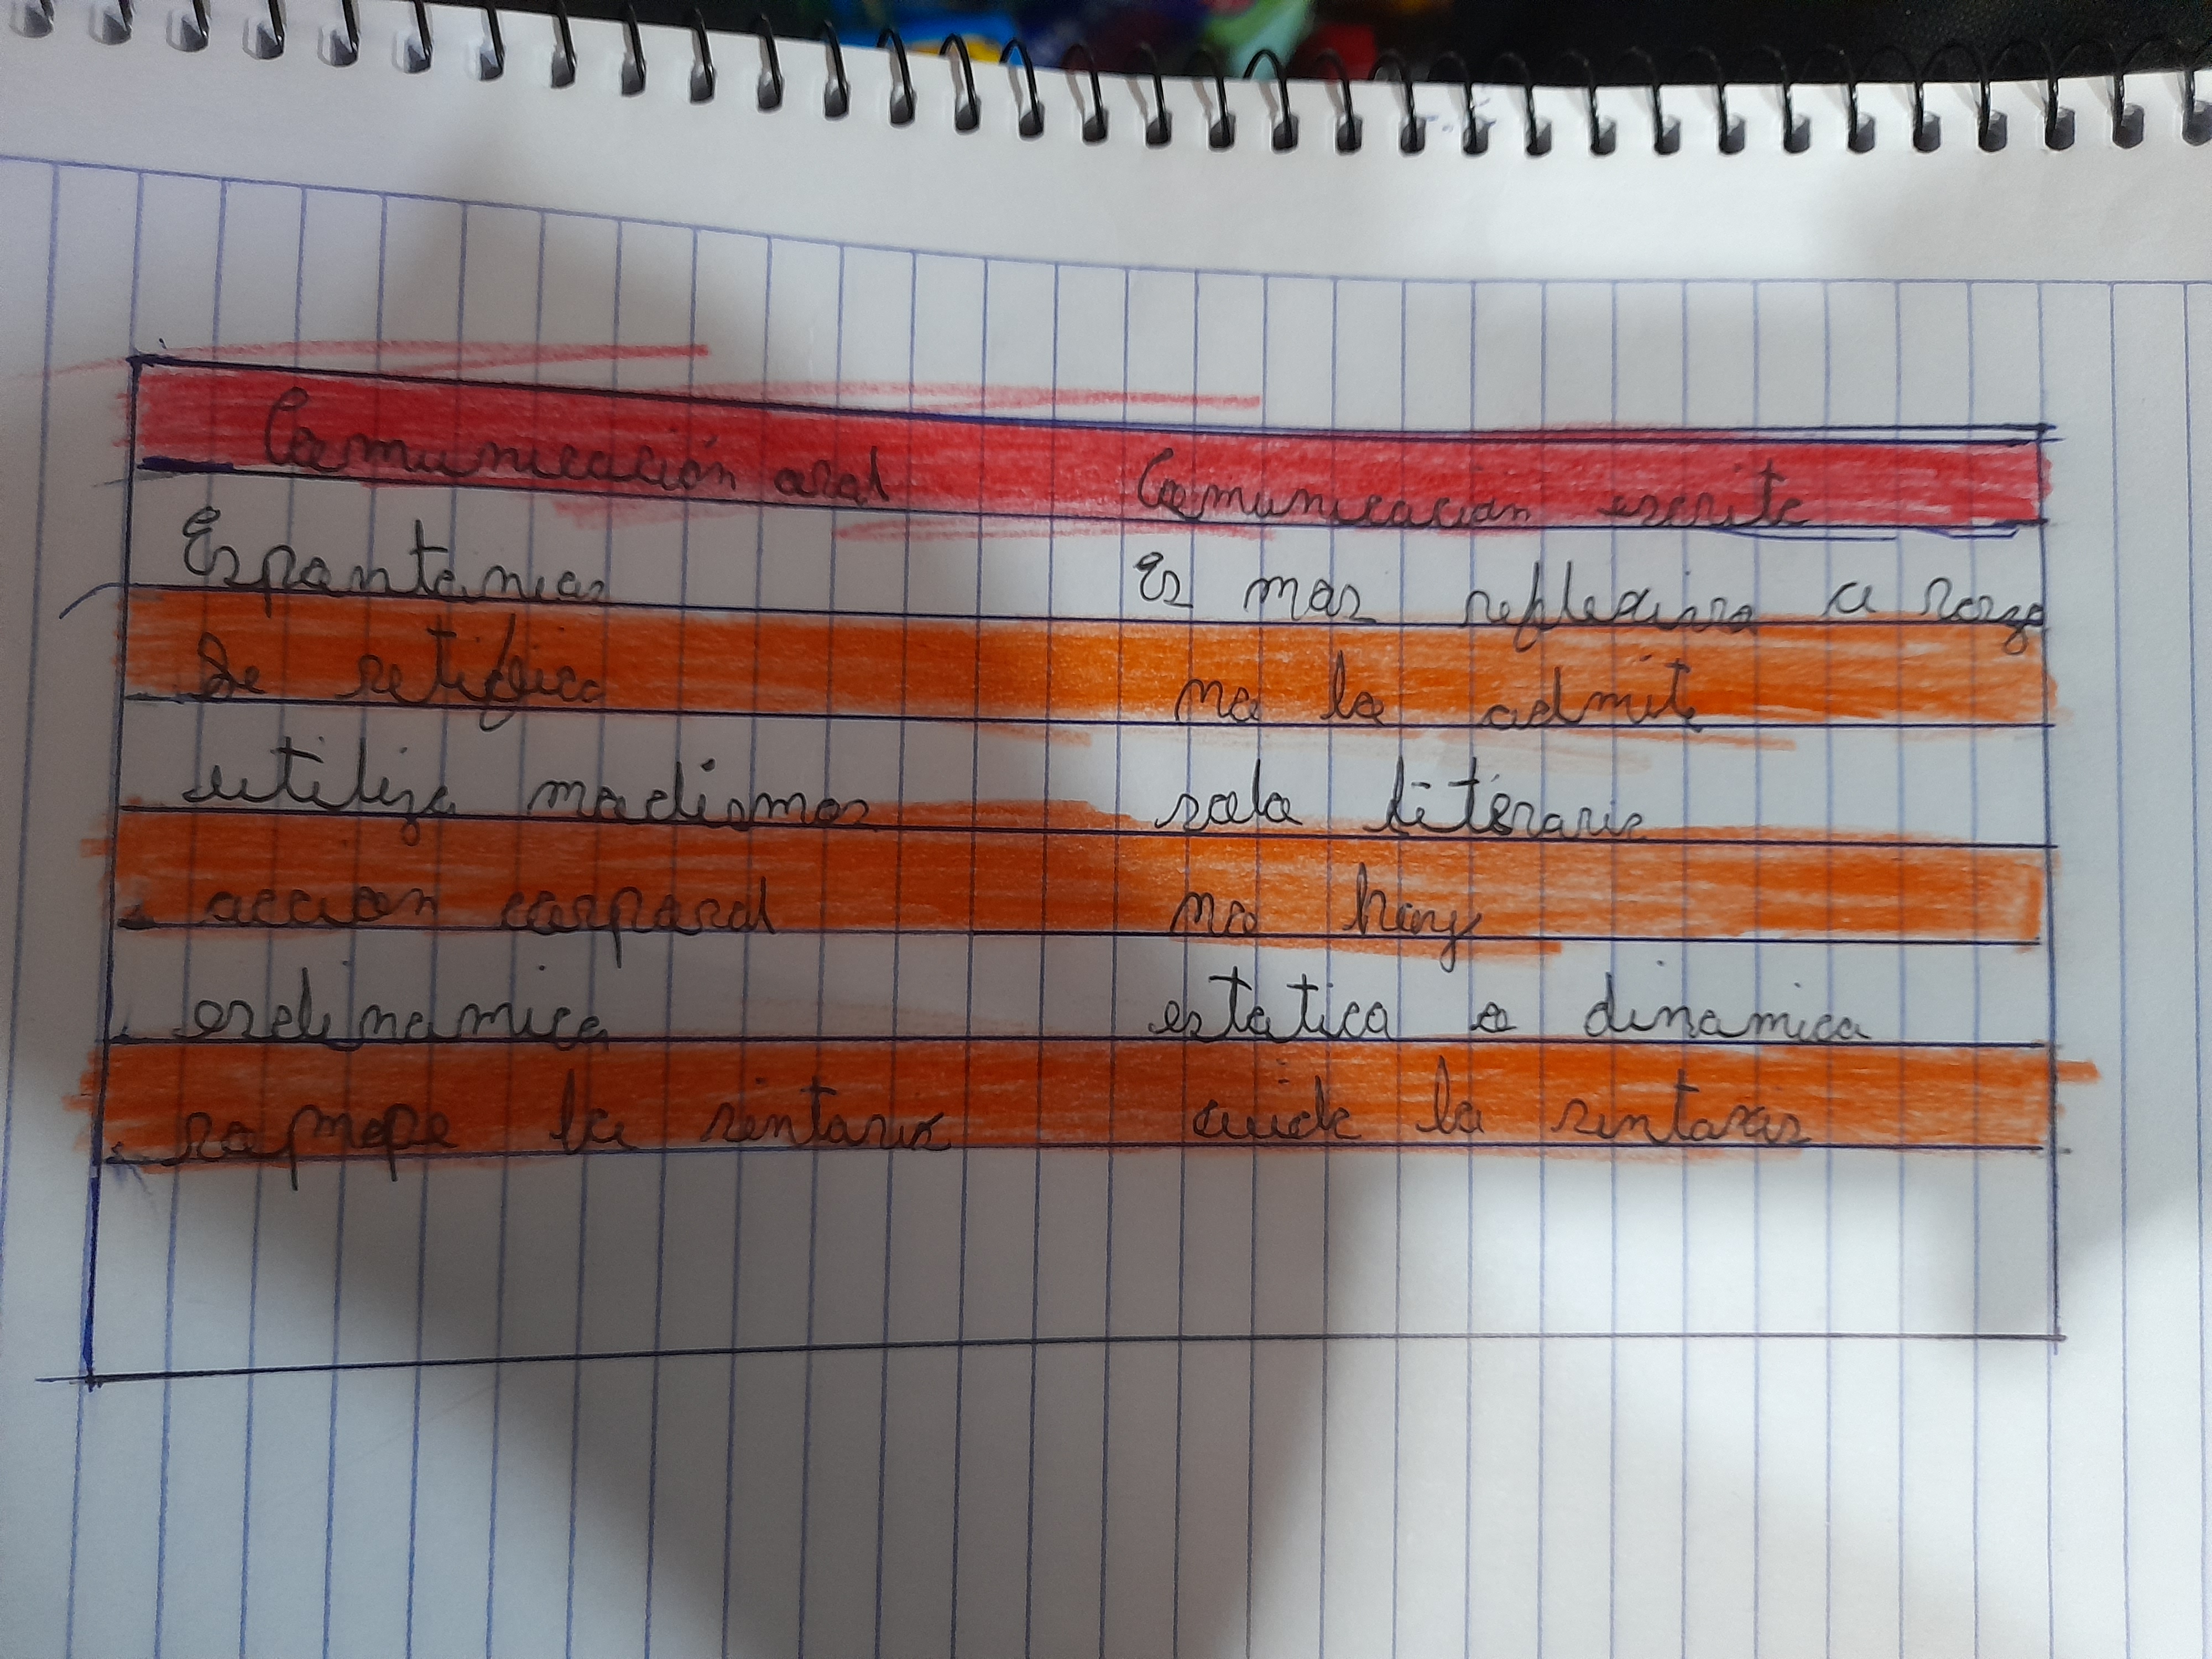 Comunicación oral Comunicacion escrite
Espontanias Es mas reflexiva a
Se retifica no lo admite
utiliza modismos solo literario
accion corporal no hay
es dinamica estatica o dinamica
rompe la sintaxis cuide la sintaxis